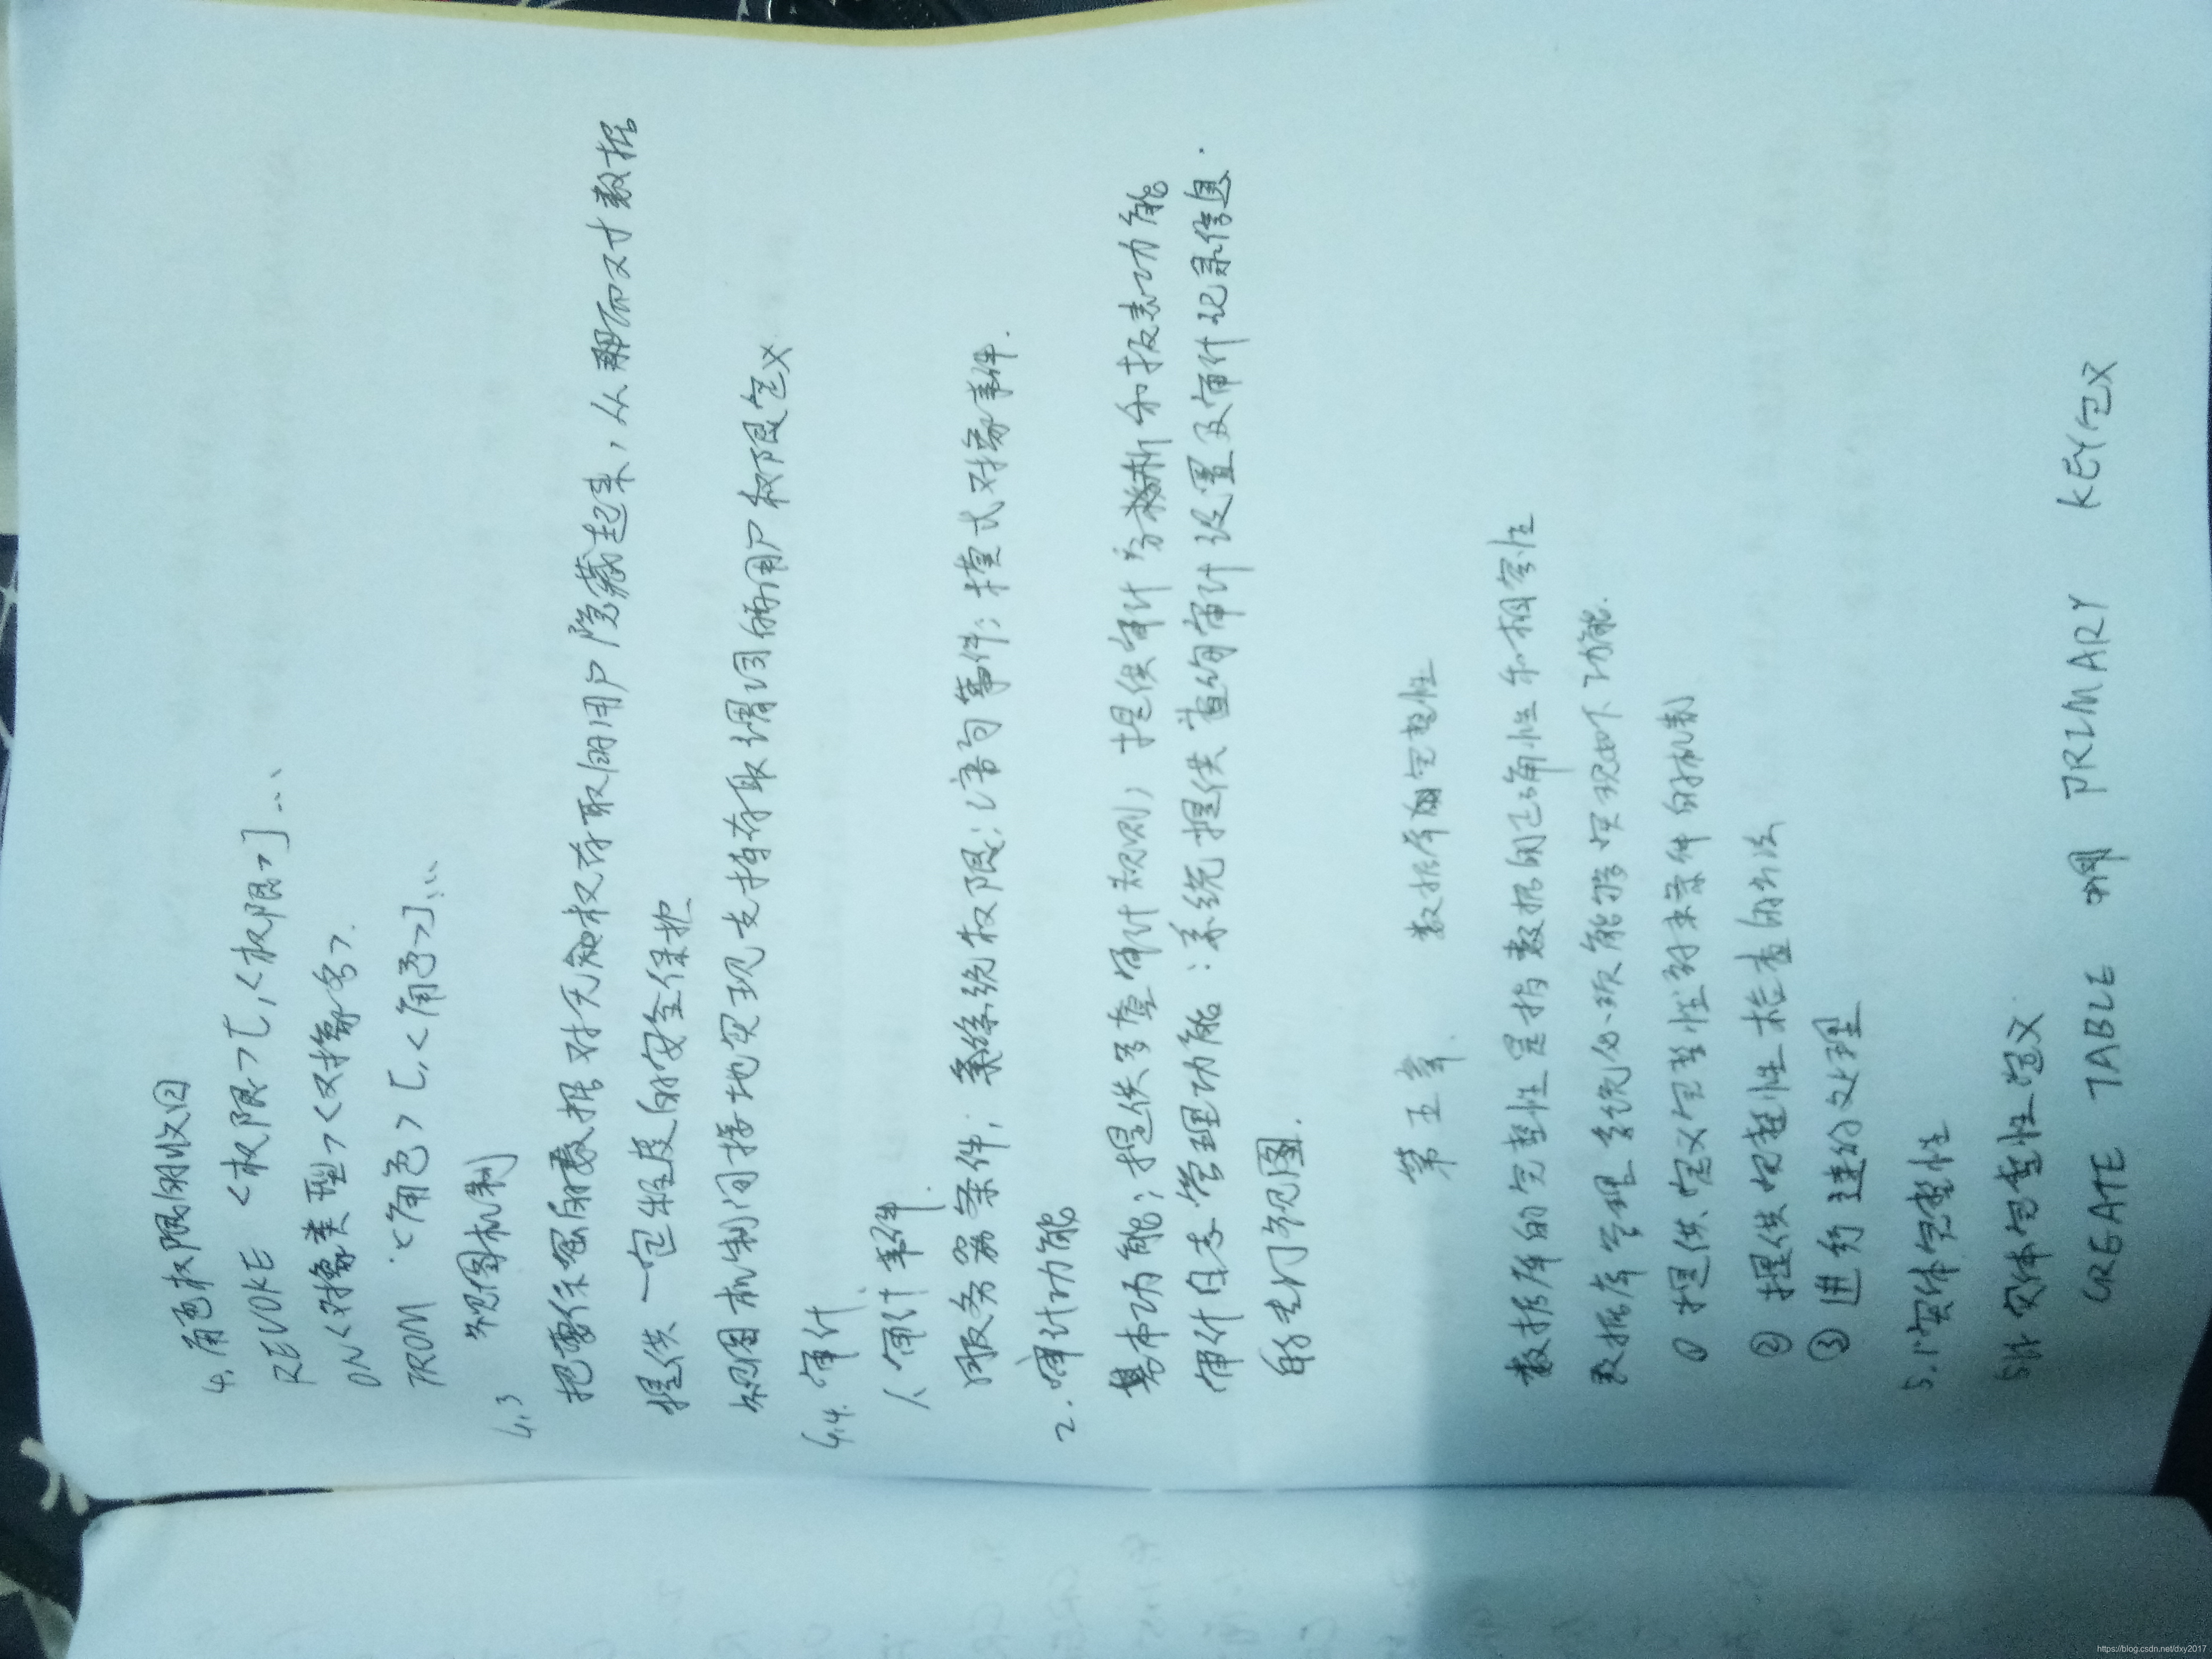 4.角色权限的收回
REVOKE <权限>[,<权限>]...
ON <对象类型> <对象名>.
FROM <角色>[,<角色>]...
4.3 视图机制
把要保密的数据对无权存取的用户隐藏起来,从而对数据
提供一定程度的安全保护
视图机制间接地实现支持存取谓词的用户权限定义
4.4.审计.
1.审计事件.
服务器条件; 系统权限; 语句事件; 模式对象事件.
2.审计功能
基本功能; 提供多套审计规则; 提供审计分析和报表功能
审计日志管理功能: 系统提供查询审计设置及审计记录信息.
的专门视图.
第五章. 数据库的完整性
数据库的完整性是指数据的正确性和相容性
数据库管理系统必须能够实现如下功能.
① 提供定义完整性约束条件的机制
② 提供完整性检查的方法
③ 进行违约处理
5.1实体完整性
5.1.1 实体完整性定义
CREATE TABLE 用 PRIMARY KEY定义
https://blog.csdn.net/dxy2017